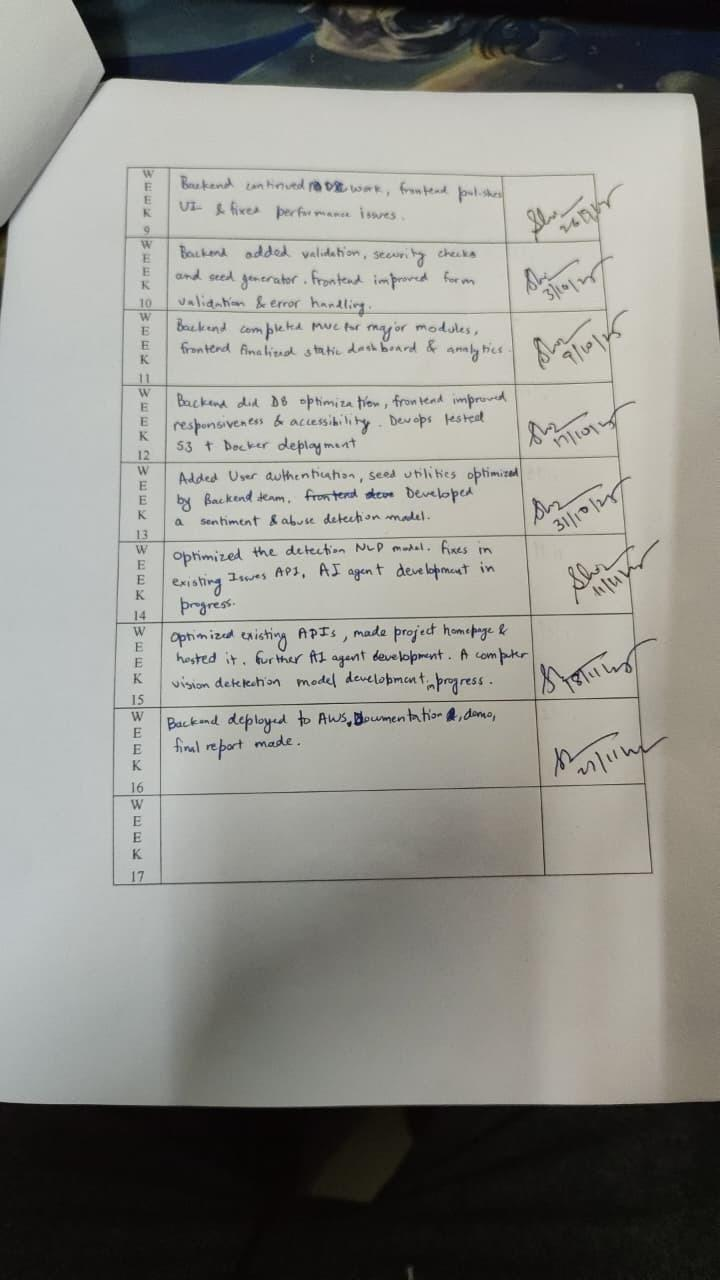 WEEK 9
Backend continued work, frontend polishes
UI & fixed performance issues.
WEEK 10
Backend added validation, security checks
and seed generator. frontend improved form
validation & error handling.
3/10/25
WEEK 11
Backend completed MVC for major modules,
frontend finalized static dashboard & analytics.
9/10/25
WEEK 12
Backend did DB optimization, frontend improved
responsiveness & accessibility. Devops tested
S3 + Docker deployment
17/10/25
WEEK 13
Added User authentication, seed utilities optimized
by Backend team. frontend Developed
a sentiment & abuse detection model.
31/10/25
WEEK 14
Optimized the detection NLP model. fixes in
existing Issues API, AI agent development in
progress.
11/11/25
WEEK 15
Optimized existing APIs, made project homepage &
hosted it. further AI agent development. A computer
vision detetection model development in progress.
18/11/25
WEEK 16
Backend deployed to AWS, Documentation, demo,
final report made.
27/11/25
WEEK 17